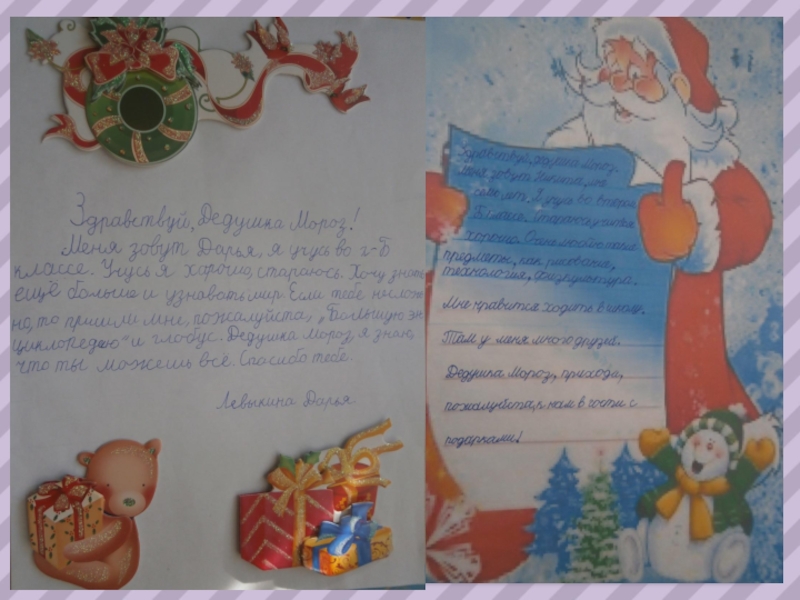 Здравствуй, Дедушка Мороз!
Меня зовут Дарья, я учусь во 2-Б
классе. Учусь я хорошо, стараюсь. Хочу знать
ещё больше и узнавать мир. Если тебе неслож
но, то пришли мне, пожалуйста, "Большую эн
циклопедию" и глобус. Дедушка Мороз, я знаю,
что ты можешь всё. Спасибо тебе.
Левыкина Дарья
Здравствуй, Дедушка Мороз.
Меня зовут Никита, мне
семь лет. Я учусь во втором
Б классе. Стараюсь учиться
хорошо. Очень люблю такие
предметы, как рисование,
технология, физкультура.
Мне нравится ходить в школу.
Там у меня много друзей.
Дедушка Мороз, приходи,
пожалуйста, к нам в гости с
подарками!